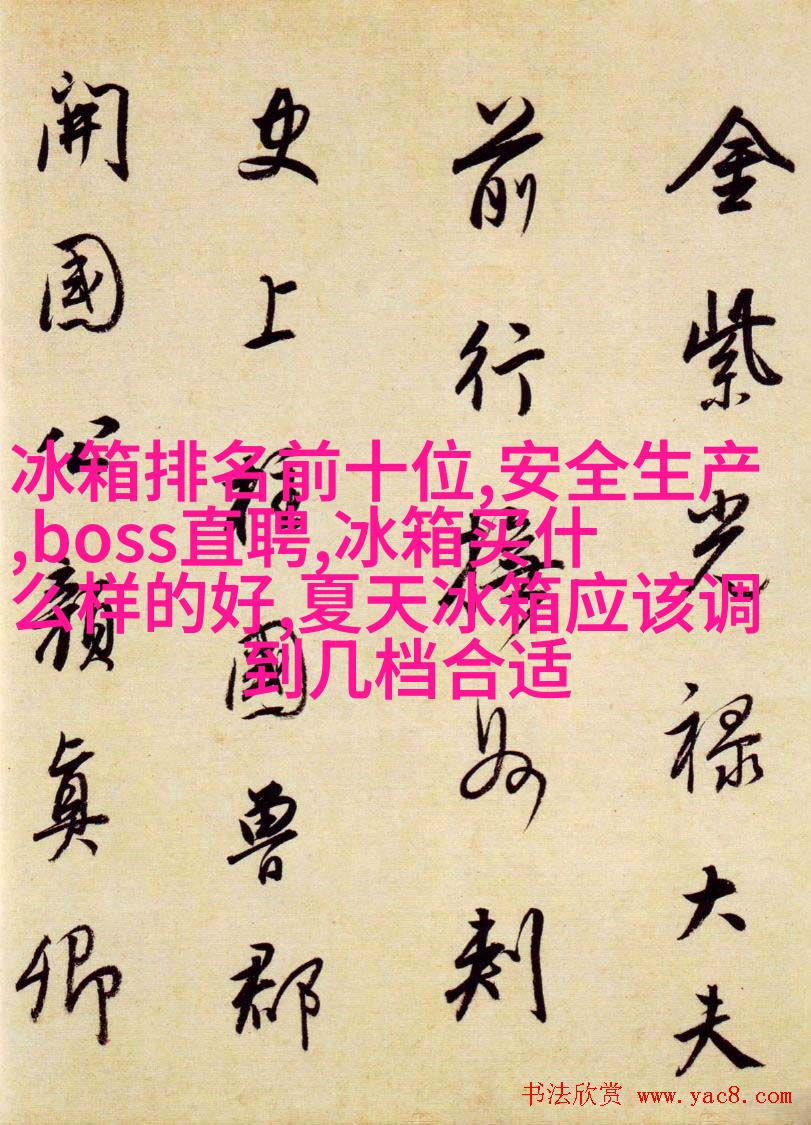 金紫光禄大夫
前行撫州刺
史上國魯郡
開國公顏真卿
冰箱排名前十位,安全生产
,boss直聘,冰箱买什
么样的好,夏天冰箱应该调
到几档合适
书法欣赏 www.yac8.com